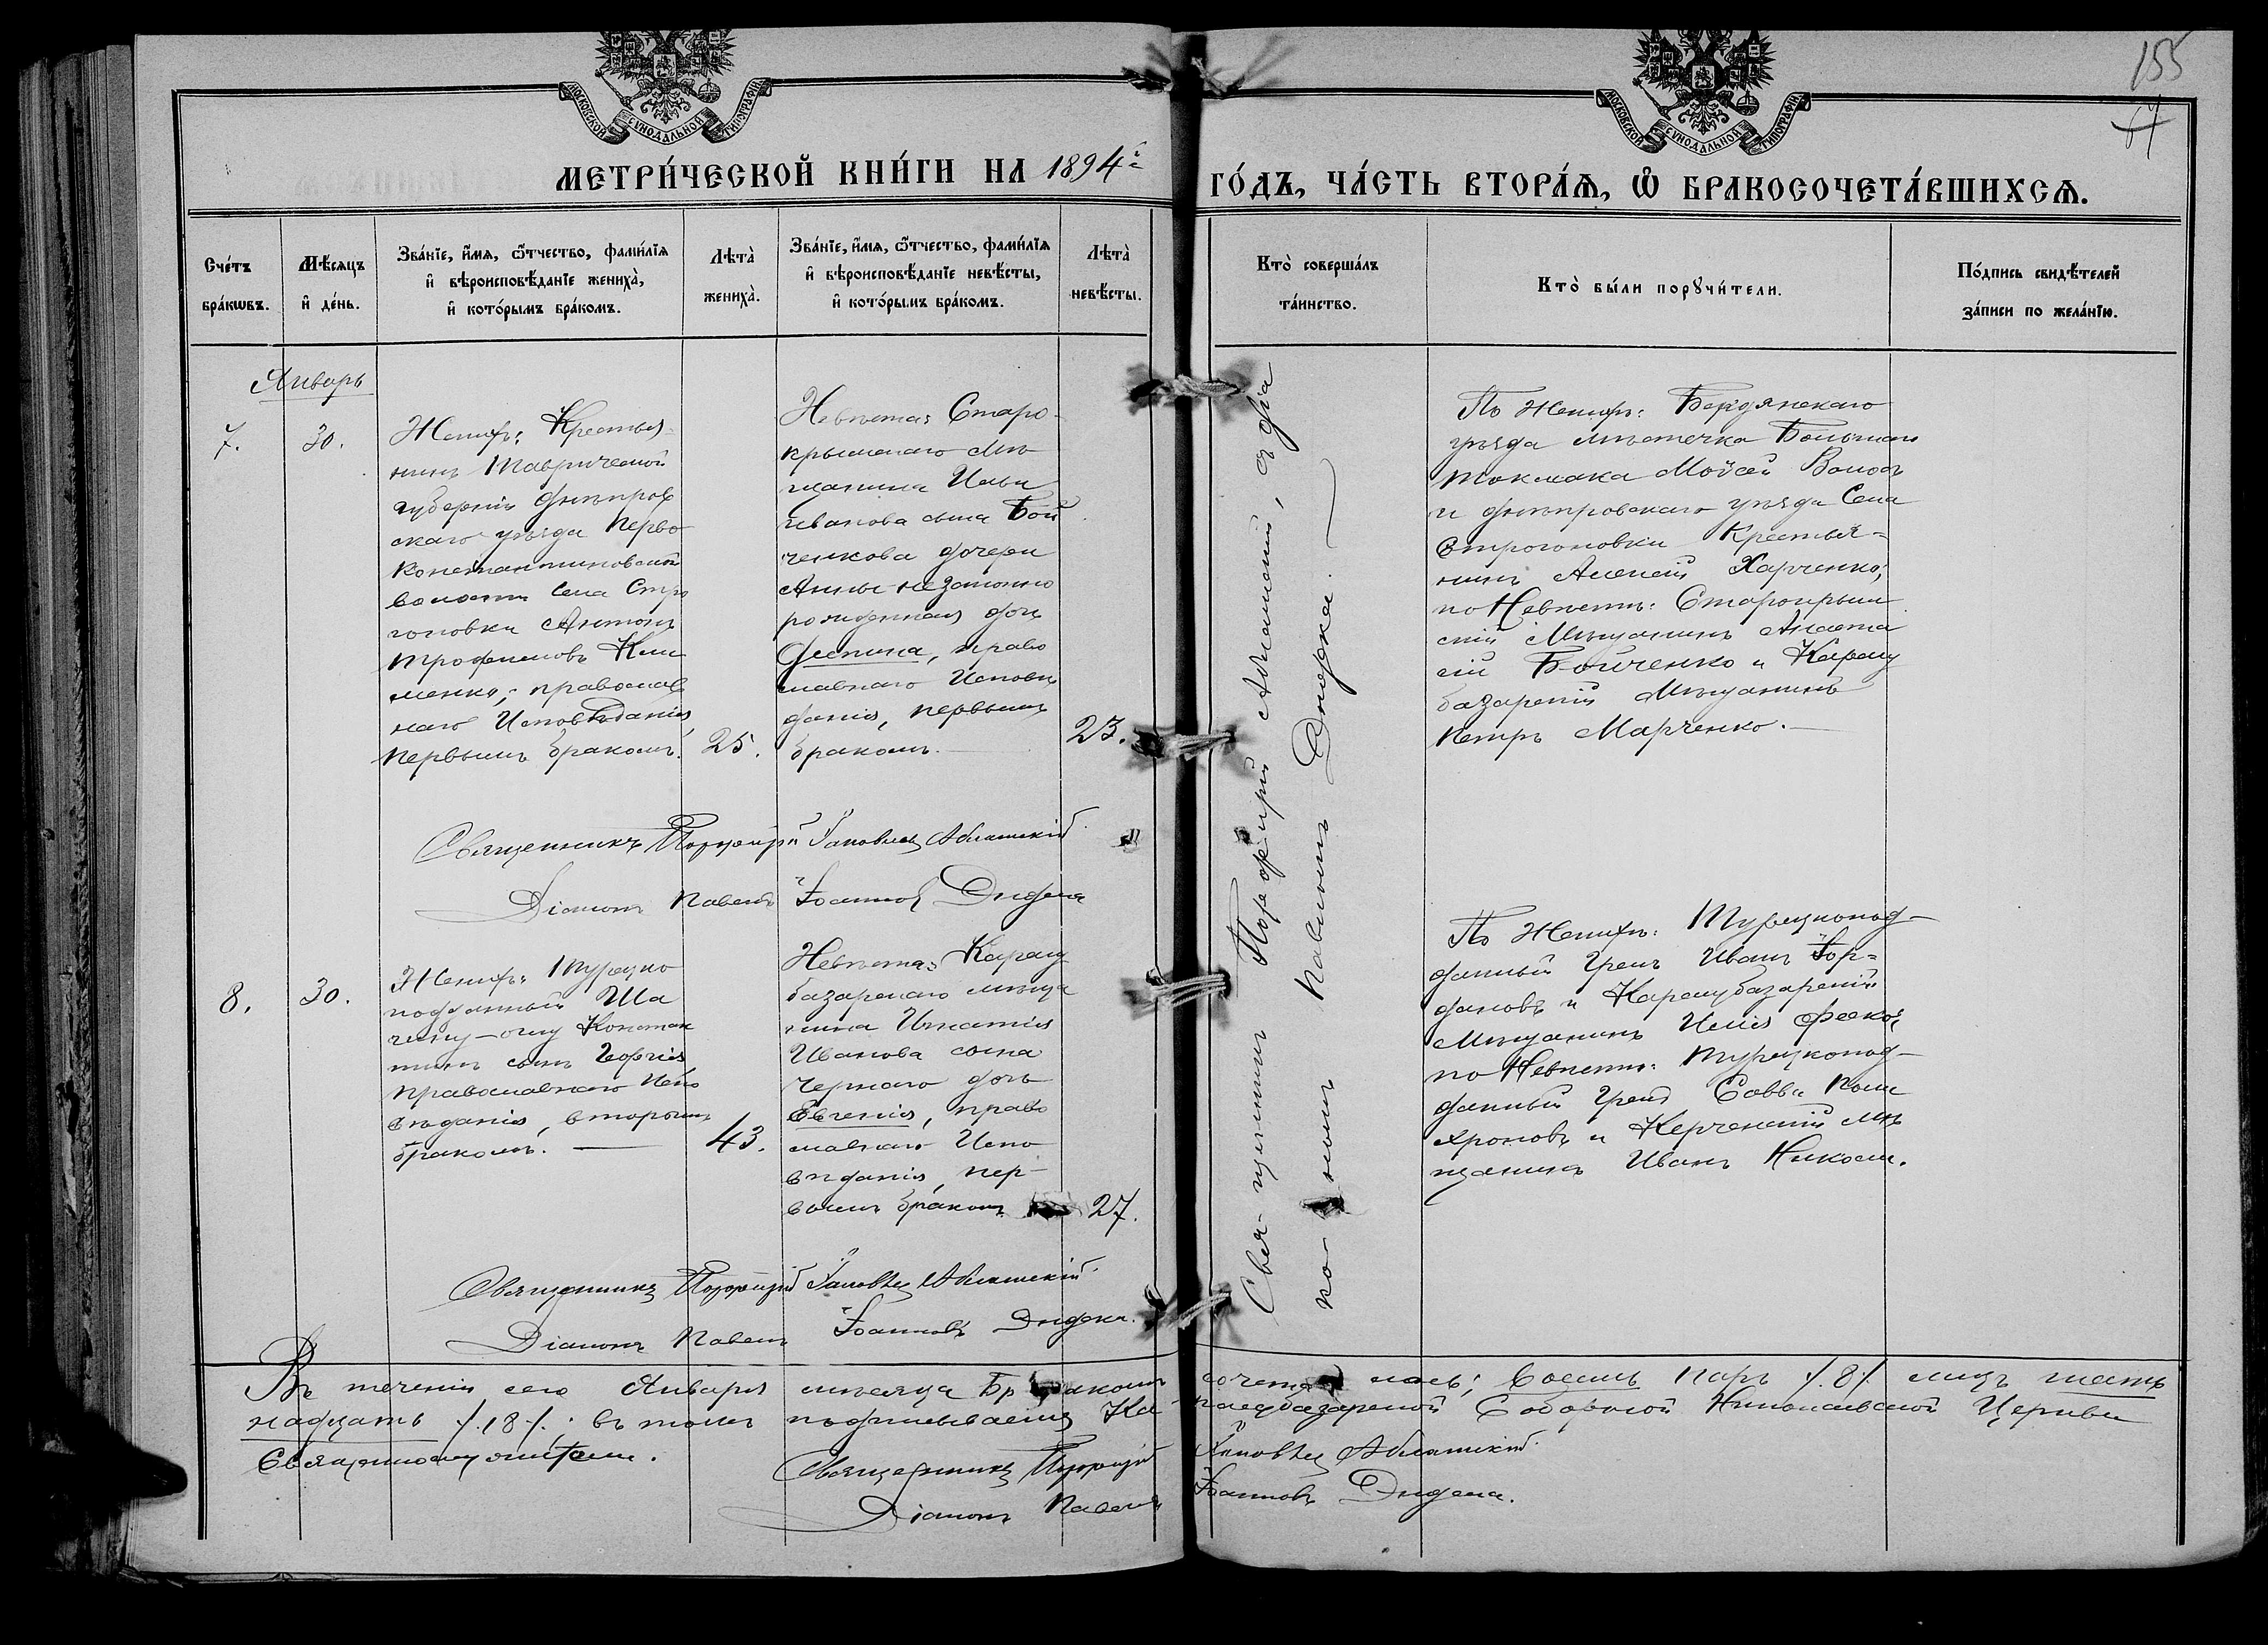 155
МОСКОВСКОЙ СѴНОДАЛЬНОЙ ТИПОГРАФІИ
МОСКОВСКОЙ СѴНОДАЛЬНОЙ ТИПОГРАФІИ
МЕТРИ́ЧЕСКОЙ КНИ́ГИ НА 1894й
ГО́ДЪ, ЧА́СТЬ ВТОРА́Ѧ, Ѡ БРАКОСОЧЕТА́ВШИХСѦ.
Сче́тъ
бра́кѡвъ.
Мѣ́сяцъ
и де́нь.
Зва́нїе, и́мѧ, ѻ́тчество, фами́лїѧ
и вѣроисповѣ́данїе жениха̀,
и кото́рымъ бра́комъ.
Лѣта̀
жениха̀.
Зва́нїе, и́мѧ, ѻ́тчество, фами́лїѧ
и вѣроисповѣ́данїе невѣ́сты,
и кото́рымъ бра́комъ.
Лѣта̀
невѣ́сты.
Кто̀ соверша́лъ
та́инство.
Кто̀ бы́ли порꙋчи́тели.
По́дпись свидѣ́телей
за́писи по жела́нїю.
Январь
7.
30.
Женихъ: Крестья-
нинъ Таврической
губерніи Днѣпров
скаго уѣзда Перво
Константиновской
волости Села Стро
гоновки Антонъ
Трофимовъ Кли
менко, православ
наго Исповѣданія,
первымъ бракомъ.
25.
Невѣста: Старо-
крымскаго мѣ
щанина Ильи
Иванова сына Бой
ченкова дочери
Анны незаконно
рожденная дочь
, право
славнаго Исповѣ
данія, первымъ
бракомъ.
23.
Священникъ Порфирій Іаковлевъ
Діаконъ Павелъ Іоанновъ Дидена
Священникъ Порфирій , а діа
кономъ Павломъ
По Женихѣ: Бердянскаго
уѣзда мѣстечка Большаго
Токмака Мойсей
и Днѣпровскаго уѣзда Села
Строгоновки Крестья=
нинъ Алексій Харченко;
по Невѣстѣ: Старокрым
скій Мѣщанинъ Анаста
сій Бойченко и Карасу
базарскій Мѣщанинъ
Петръ Марченко.
8.
30.
Женихъ: Турецко
подданный Ша
Констан
тинъ сынъ Георгія
православнаго Испо
вѣданія, вторымъ
бракомъ.
43.
Невѣста: Карасу
базарскаго мѣща
нина Игнатія
Иванова сына
Чернаго дочь
Евгенія, право
славнаго Испо
вѣданія, пер-
вымъ бракомъ
27.
По Женихѣ: Турецкопод-
данный Грекъ Иванъ Іор=
дановъ и Карасубазарскій
Мѣщанинъ Илія
по Невѣстѣ: Турецкопод-
данный Грекъ Савва
и Керченскій мѣ
щанинъ Иванъ Никола.
Священникъ Порфирій Іаковлевъ
Діаконъ Павелъ Іоанновъ Дидена.
Въ теченіи сего Января мѣсяца Бракомъ сочеталось; Восемь паръ /.8/. лицъ шест
надцать /.18/.; въ томъ подписываемъ Карасубазарской Соборной Николаевской Церкви
Священнослужители.
Священникъ Порфирій Іаковлевъ
Діаконъ Павелъ Іоанновъ Дидена.